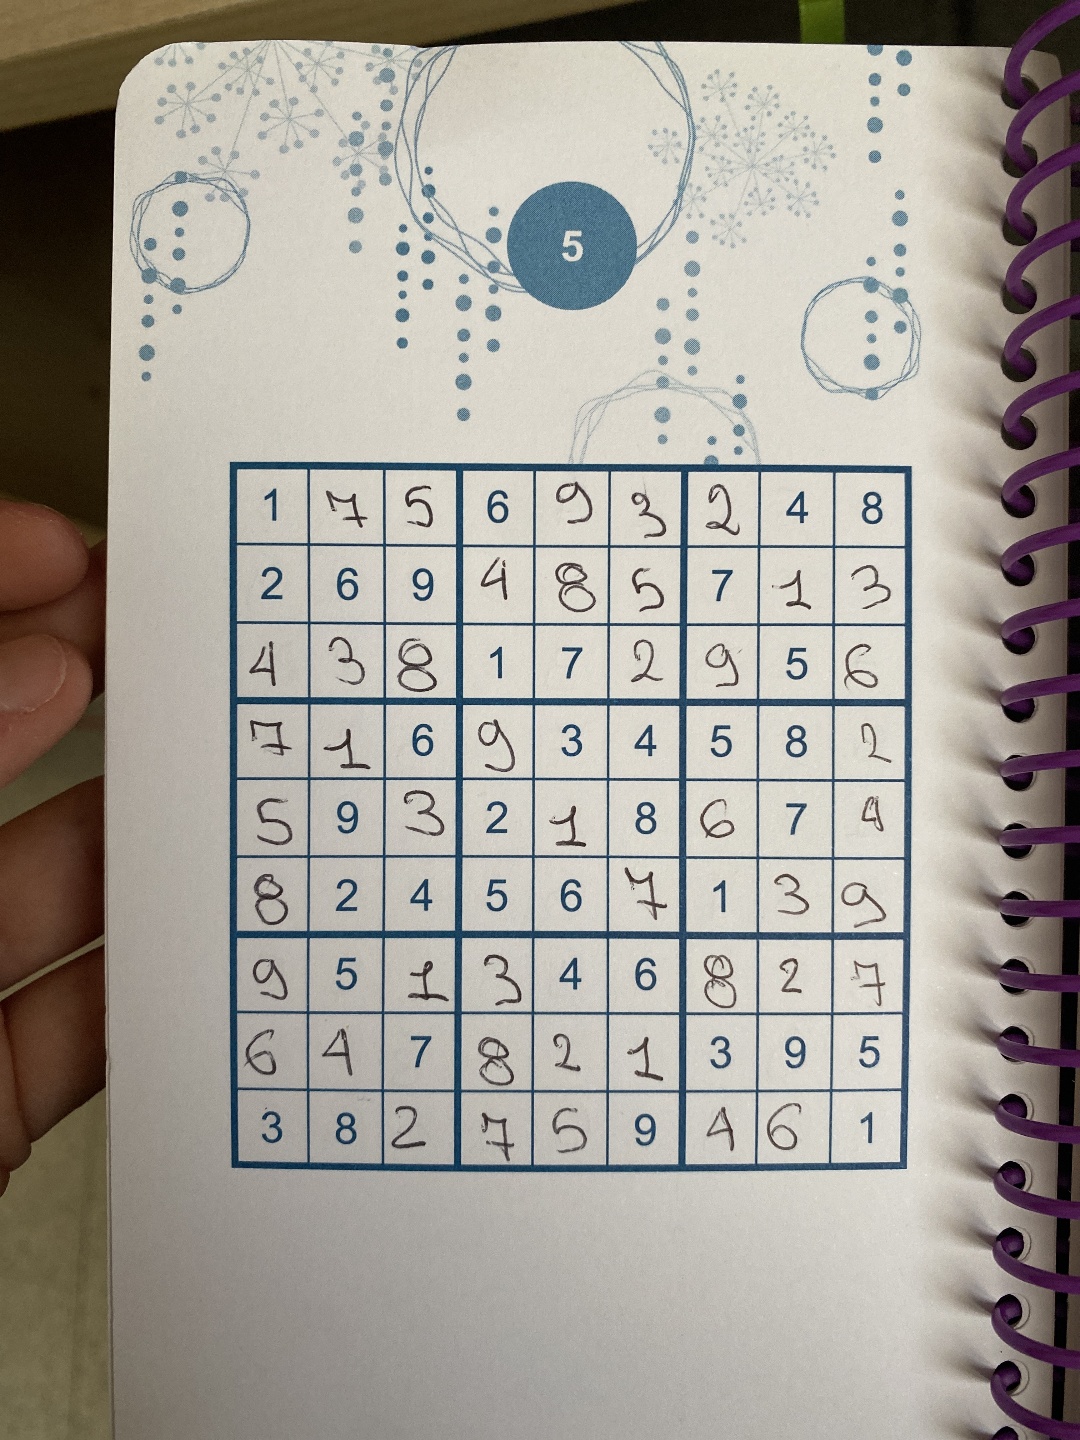 5
1 7 5 6 9 3 2 4 8
2 6 9 4 8 5 7 1 3
4 3 8 1 7 2 9 5 6
7 1 6 9 3 4 5 8 2
5 9 3 2 1 8 6 7 4
8 2 4 5 6 7 1 3 9
9 5 1 3 4 6 8 2 7
6 4 7 8 2 1 3 9 5
3 8 2 7 5 9 4 6 1